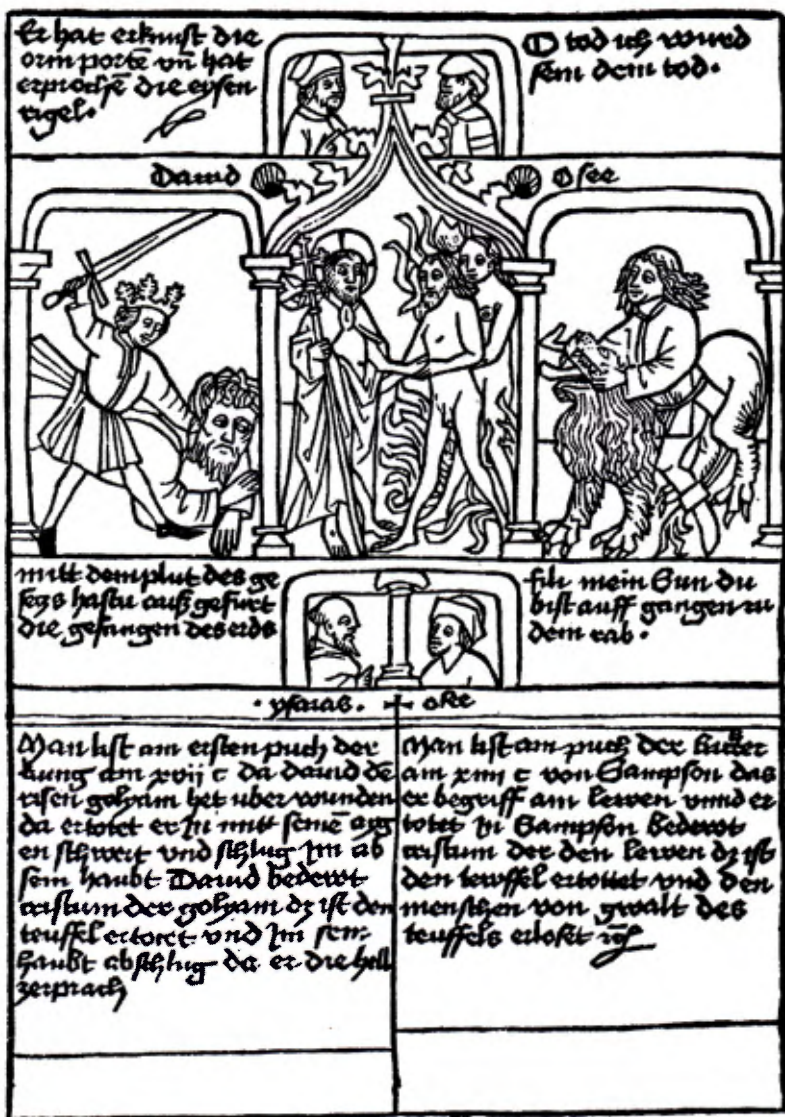 Er hat erknist die
orin porte vn̄ hat
erprochē die eysen
rigel.
O tod ich wurd
sein dem tod.
Dauid
Osee
mitt dem plut des ge
sezs hastu auß gefurt
die gefangen des erds
mein Sun du
bist auff gangen zu
dem rab.
. ysaias .
Man list am ersten puch der
kung am xvij c da dauid dē
risen golyam het uber wunden
da ertotet er in mitt seinē aig
en schwert vnd schlug im ab
sein haubt Dauid bedewt
cristum der golyam dz ist den
teuffel ertotet vnd Im sein
haubt abschlug da er die hell
zerprach
Man list am puch der
am xiiii c von Sampson das
er begriff ain lewen vnnd er
totet in Sampson bedewt
cristum der den lewen dz ist
den tewffel ertottet vnd den
menschen von gwalt des
teuffels erloset